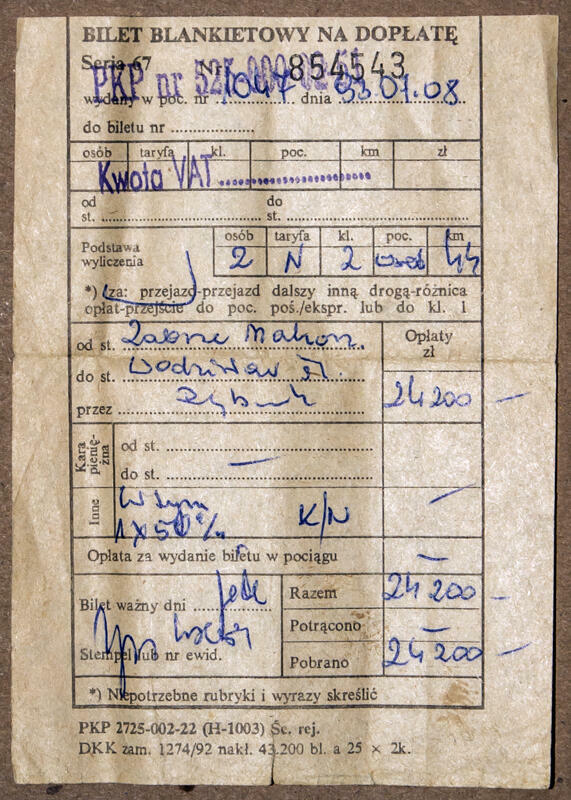 BILET BLANKIETOWY NA DOPŁATĘ
Serja 67 Nr 854543
PKP nr
wydany w poc. nr 1047 dnia 03.07.08
do biletu nr
osób taryfa kl. poc. km zł
Kwota VAT
od st. do st.
osób taryfa kl. poc. km
Podstawa wyliczenia 2 N 2 osob 44
*) za: przejazd-przejazd dalszy inną drogą-różnica
opłat-przejście do poc. poś./ekspr. lub do kl. 1
Opłaty zł
od st. Zabrze Makosz.
do st. Wodzisław Śl.
przez Rybnik 24 200 —
Kara pieniężna
od st.
do st. —
Inne W tym
1 x 50% K/N —
Opłata za wydanie biletu w pociągu —
Bilet ważny dni jeden Razem 24 200 —
Potrącono —
Stempel lub nr ewid. Pobrano 24 200 —
*) Niepotrzebne rubryki i wyrazy skreślić
PKP 2725-002-22 (H-1003) Śc. rej.
DKK zam. 1274/92 nakł. 43.200 bl. a 25 × 2k.